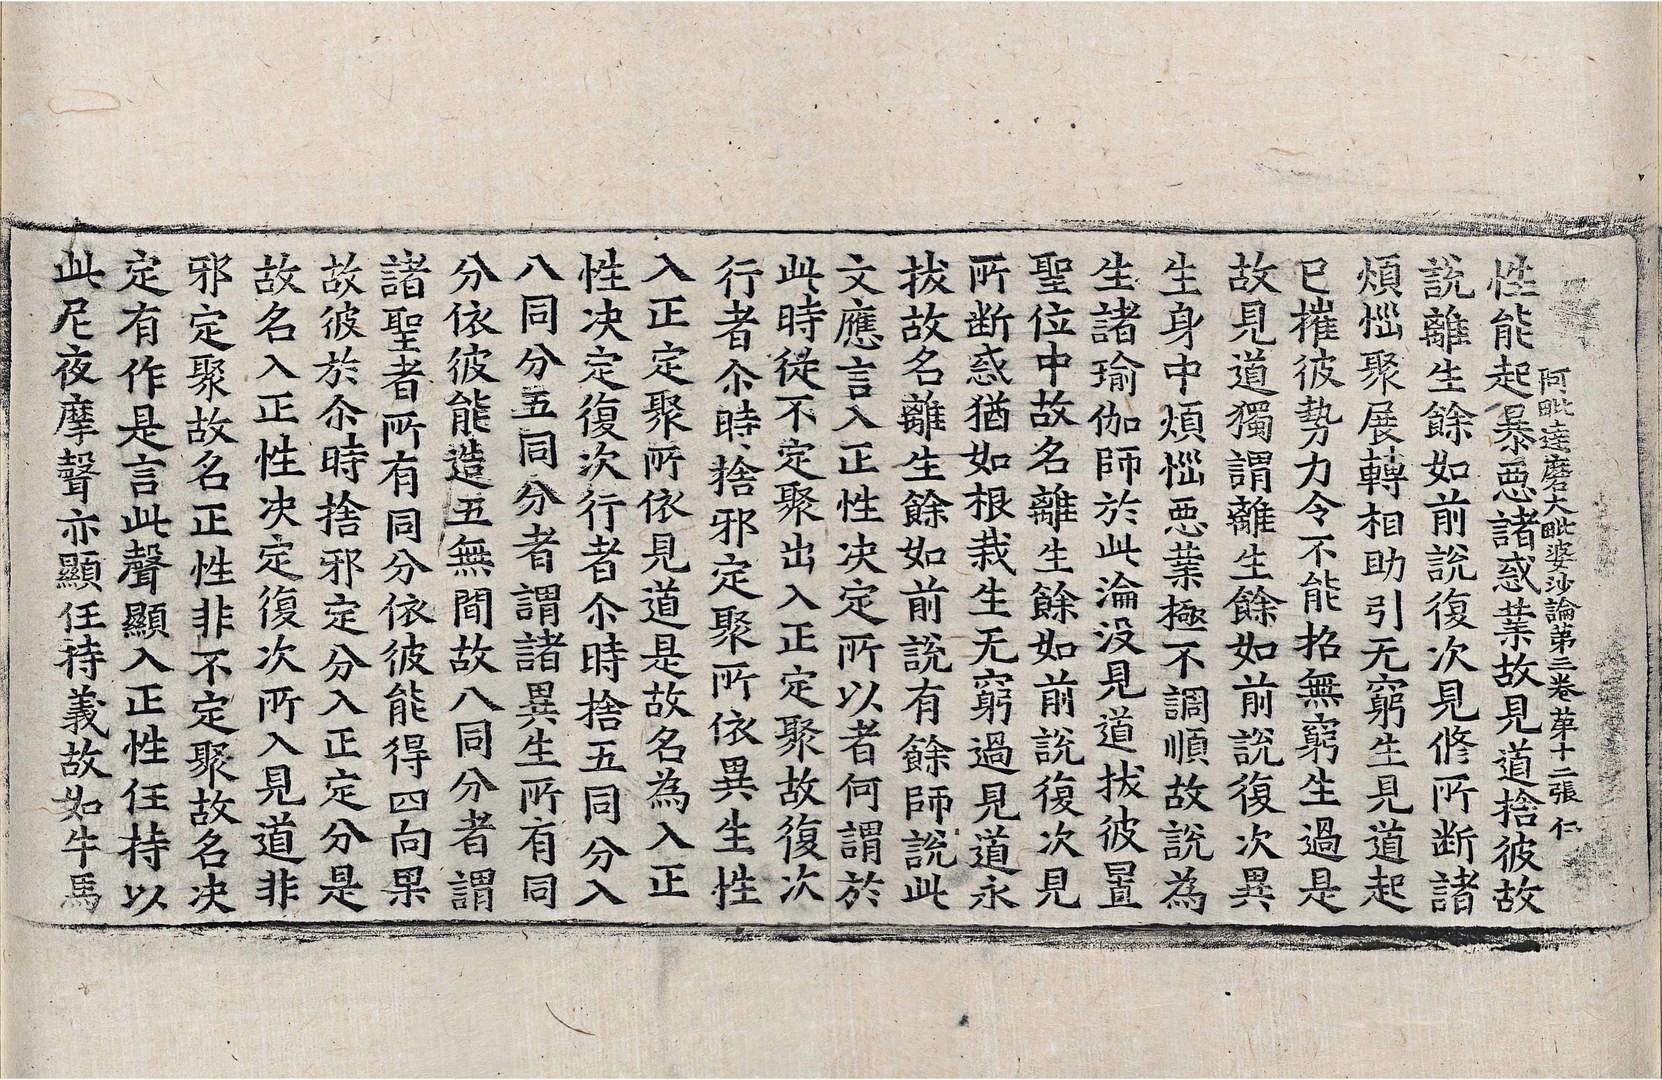 阿毗達磨大毗婆沙論第三卷 第十二張 仁
性能起暴惡諸惑業故見道捨彼故
說離生餘如前說復次見修所断諸
煩惱聚展轉相助引无窮生見道起
已摧彼勢力令不能招無窮生過是
故見道獨謂離生餘如前說復次異
生身中煩惱惡業極不調順故說為
生諸瑜伽師於此淪没見道拔彼置
聖位中故名離生餘如前說復次見
所断惑猶如根栽生无窮過見道永
拔故名離生餘如前說有餘師說此
文應言入正性决定所以者何謂於
此時從不定聚出入正定聚故復次
行者尒時捨邪定聚所依異生性
入正定聚所依見道是故名為入正
性决定復次行者尒時捨五同分入
八同分五同分者謂諸異生所有同
分依彼能造五無間故八同分者謂
諸聖者所有同分依彼能得四向果
故彼於尒時捨邪定分入正定分是
故名入正性决定復次所入見道非
邪定聚故名正性非不定聚故名决
定有作是言此聲顯入正性任持以
此尼夜摩聲亦顯任持義故如牛馬